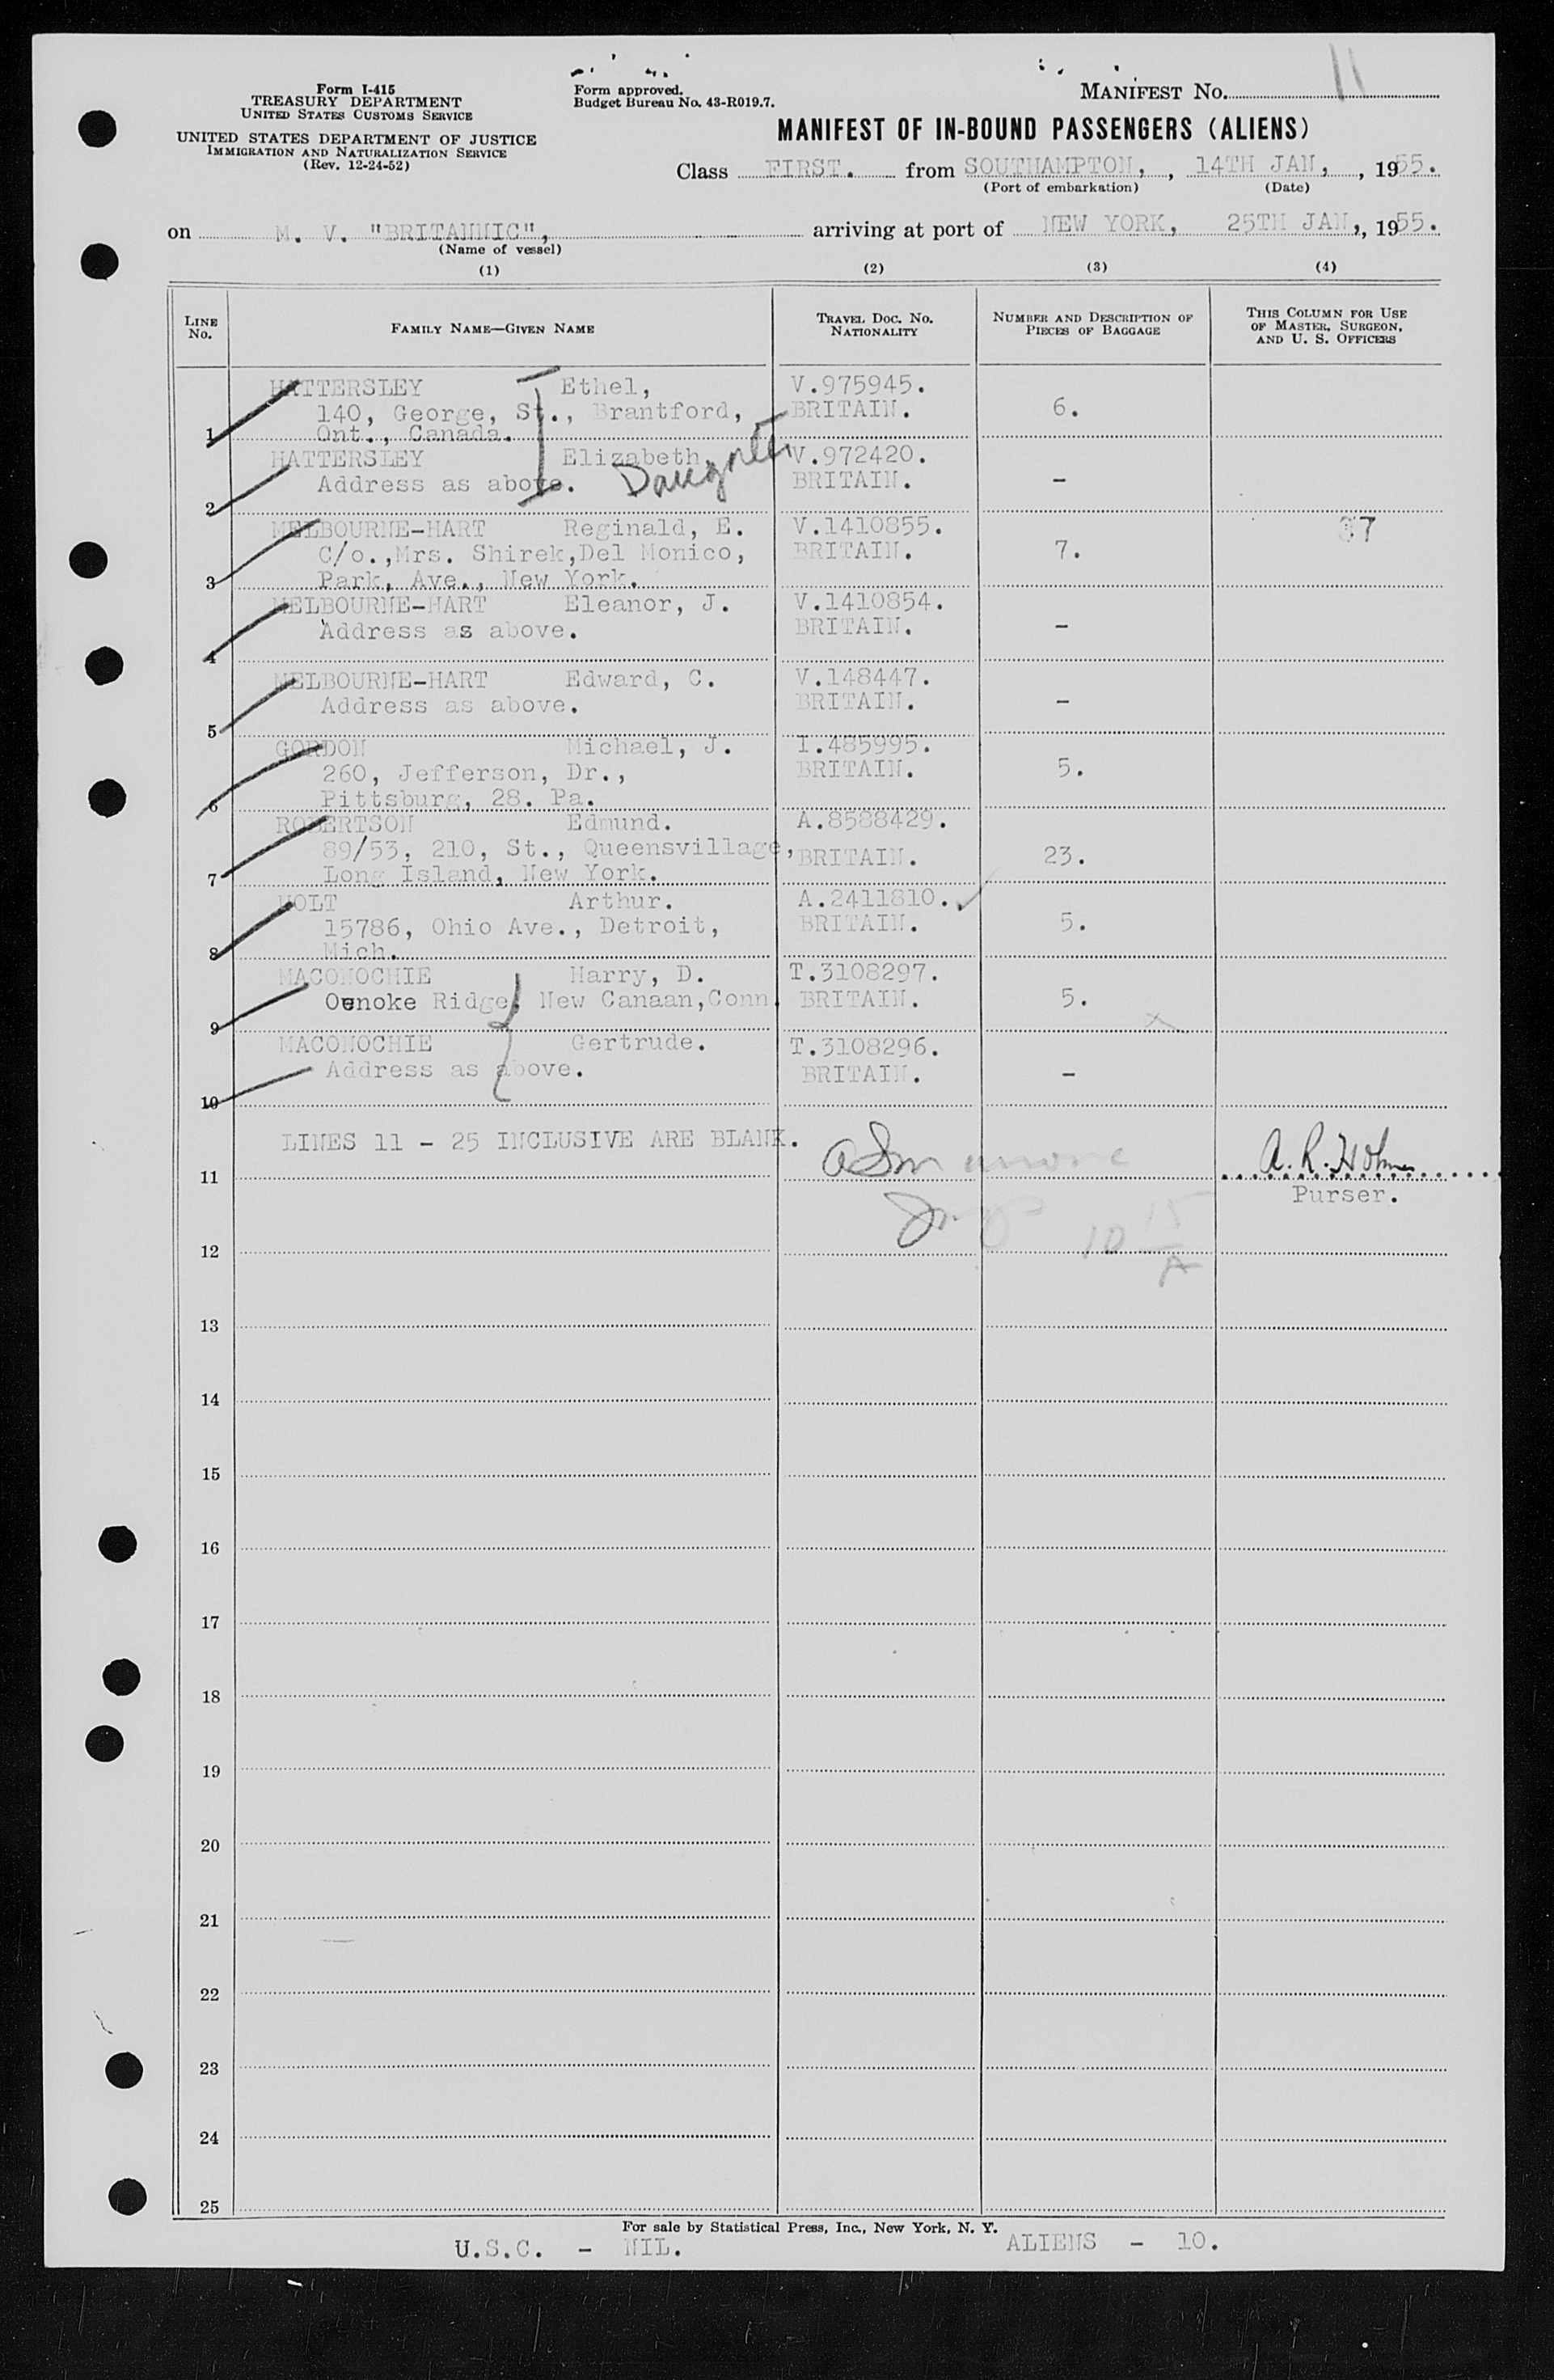 Form I-415
TREASURY DEPARTMENT
UNITED STATES CUSTOMS SERVICE
UNITED STATES DEPARTMENT OF JUSTICE
IMMIGRATION AND NATURALIZATION SERVICE
(Rev. 12-24-52)
Form approved.
Budget Bureau No. 43-R019.7.
MANIFEST No. 11
MANIFEST OF IN-BOUND PASSENGERS (ALIENS)
Class FIRST. from SOUTHAMPTON, , 14TH JAN, , 1955.
(Port of embarkation) (Date)
on M. V. "BRITANNIC", arriving at port of NEW YORK, 25TH JAN,, 1955.
(Name of vessel)
(1) (2) (3) (4)
LINE No. FAMILY NAME—GIVEN NAME TRAVEL DOC. NO. NATIONALITY NUMBER AND DESCRIPTION OF PIECES OF BAGGAGE THIS COLUMN FOR USE OF MASTER, SURGEON, AND U. S. OFFICERS
HATTERSLEY Ethel, V.975945.
140, George, St., Brantford, BRITAIN. 6.
1 Ont., Canada.
HATTERSLEY Elizabeth V.972420.
Address as above. Daughter BRITAIN. –
2
MELBOURNE-HART Reginald, E. V.1410855. 37
C/o.,Mrs. Shirek,Del Monico, BRITAIN. 7.
3 Park, Ave., New York.
MELBOURNE-HART Eleanor, J. V.1410854.
Address as above. BRITAIN. –
4
MELBOURNE-HART Edward, C. V.148447.
Address as above. BRITAIN. –
5
GORDON Michael, J. I.485995.
260, Jefferson, Dr., BRITAIN. 5.
6 Pittsburg, 28. Pa.
ROBERTSON Edmund. A.8588429.
89/53, 210, St., Queensvillage, BRITAIN. 23.
7 Long Island, New York.
HOLT Arthur. A.2411810.
15786, Ohio Ave., Detroit, BRITAIN. 5.
8 Mich.
MACONOCHIE Harry, D. T.3108297.
Oenoke Ridge, New Canaan,Conn. BRITAIN. 5.
9
MACONOCHIE Gertrude. T.3108296.
Address as above. BRITAIN. –
10
LINES 11 – 25 INCLUSIVE ARE BLANK.
11
Purser.
10 15
A
12
13
14
15
16
17
18
19
20
21
22
23
24
25
For sale by Statistical Press, Inc., New York, N. Y.
U.S.C. – NIL. ALIENS – 10.